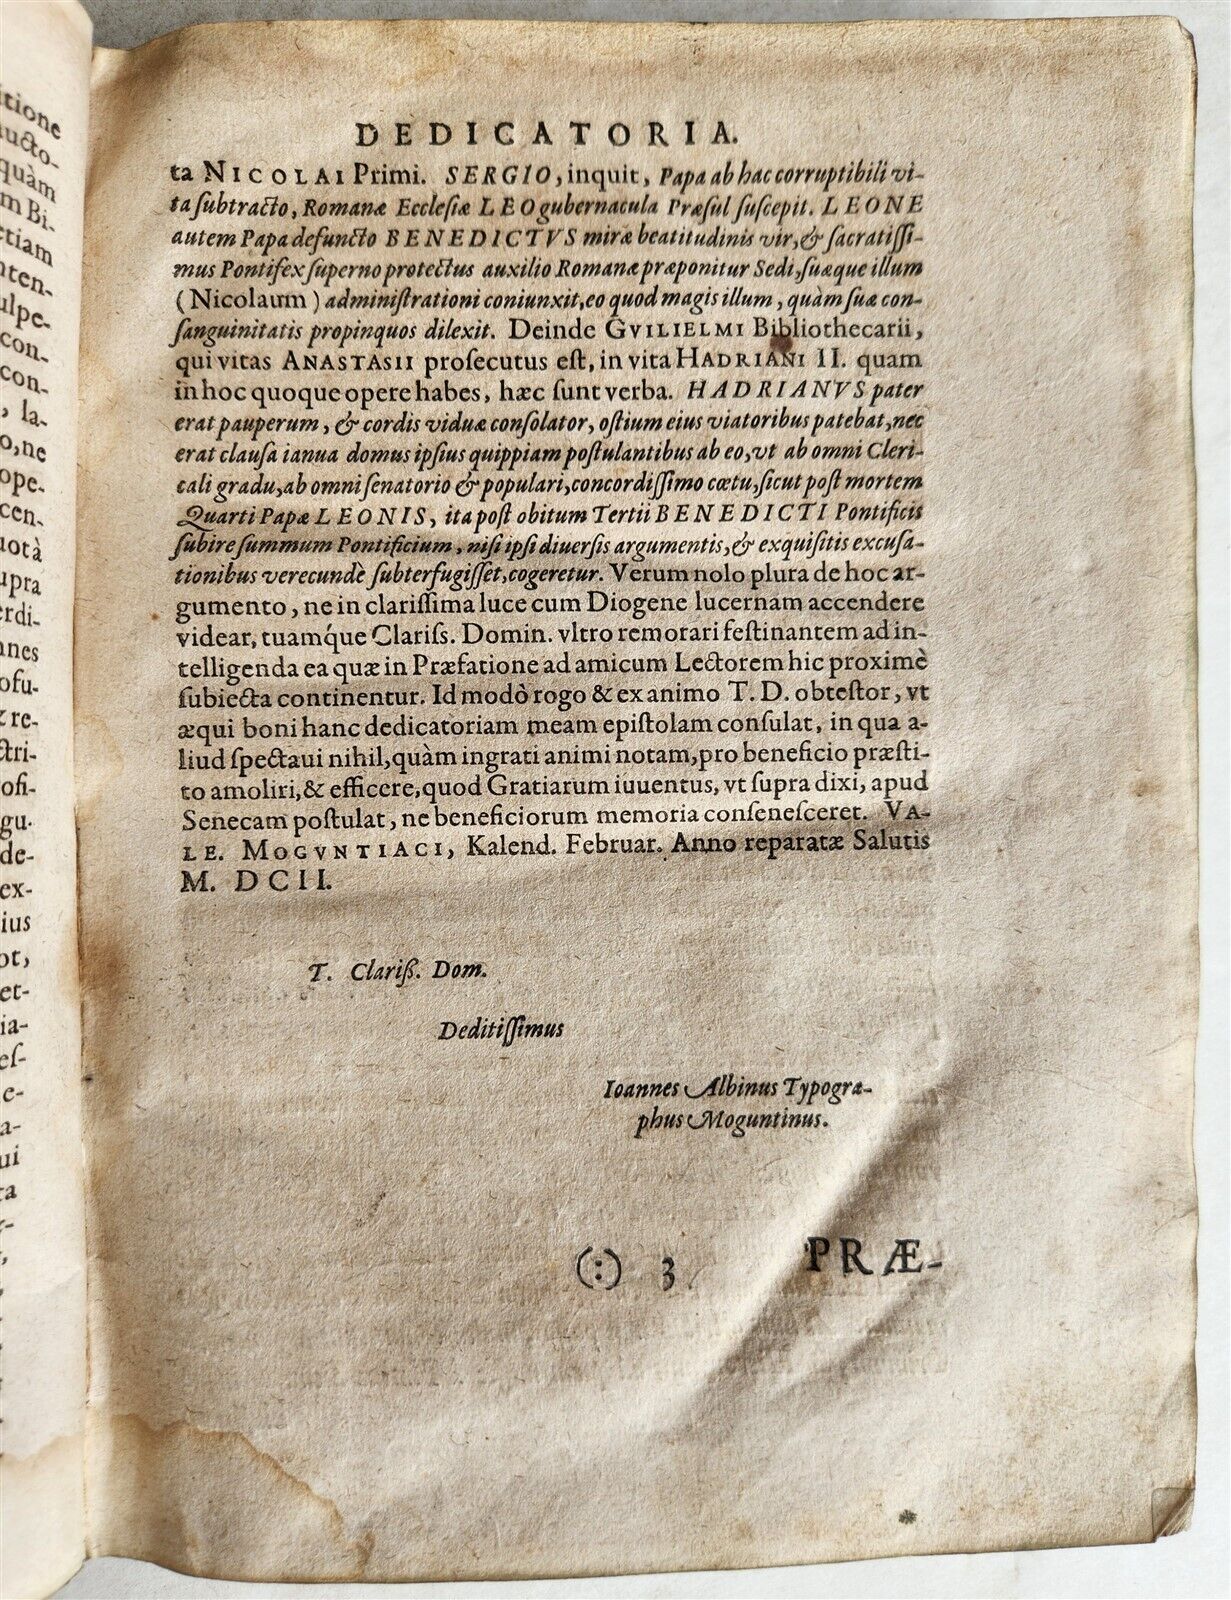 DEDICATORIA.
ta NICOLAI Primi. SERGIO, inquit, Papa ab hac corruptibili vi-
ta subtracto, Romanæ Ecclesiæ LEO gubernacula Præsul suscepit. LEONE
autem Papa defuncto BENEDICTVS miræ beatitudinis vir, & sacratissi-
mus Pontifex superno protectus auxilio Romanæ præponitur Sedi, suæque illum
(Nicolaum) administrationi coniunxit, eo quod magis illum, quàm suæ con-
sanguinitatis propinquos dilexit. Deinde GVILIELMI Bibliothecarii,
qui vitas ANASTASII prosecutus est, in vita HADRIANI II. quam
in hoc quoque opere habes, hæc sunt verba. HADRIANVS pater
erat pauperum, & cordis viduæ consolator, ostium eius viatoribus patebat, nec
erat clausa ianua domus ipsius quippiam postulantibus ab eo, vt ab omni Cleri-
cali gradu, ab omni senatorio & populari, concordissimo cœtu, sicut post mortem
Quarti Papæ LEONIS, ita post obitum Tertii BENEDICTI Pontificis
subire summum Pontificium, nisi ipsi diuersis argumentis, & exquisitis excusa-
tionibus verecundè subterfugisset, cogeretur. Verum nolo plura de hoc ar-
gumento, ne in clarissima luce cum Diogene lucernam accendere
videar, tuamq́ue Clariss. Domin. vltro remorari festinantem ad in-
telligenda ea quæ in Præfatione ad amicum Lectorem hic proximè
subiecta continentur. Id modò rogo & ex animo T. D. obtestor, vt
æqui boni hanc dedicatoriam meam epistolam consulat, in qua a-
liud spectaui nihil, quàm ingrati animi notam, pro beneficio præsti-
to amoliri, & efficere, quod Gratiarum iuuentus, vt supra dixi, apud
Senecam postulat, ne beneficiorum memoria consenesceret. VA-
LE. MOGVNTIACI, Kalend. Februar. Anno reparatæ Salutis
M. DCII.
T. Clariß. Dom.
Deditissimus
Ioannes Albinus Typogra-
phus Moguntinus.
(:) 3 PRÆ-